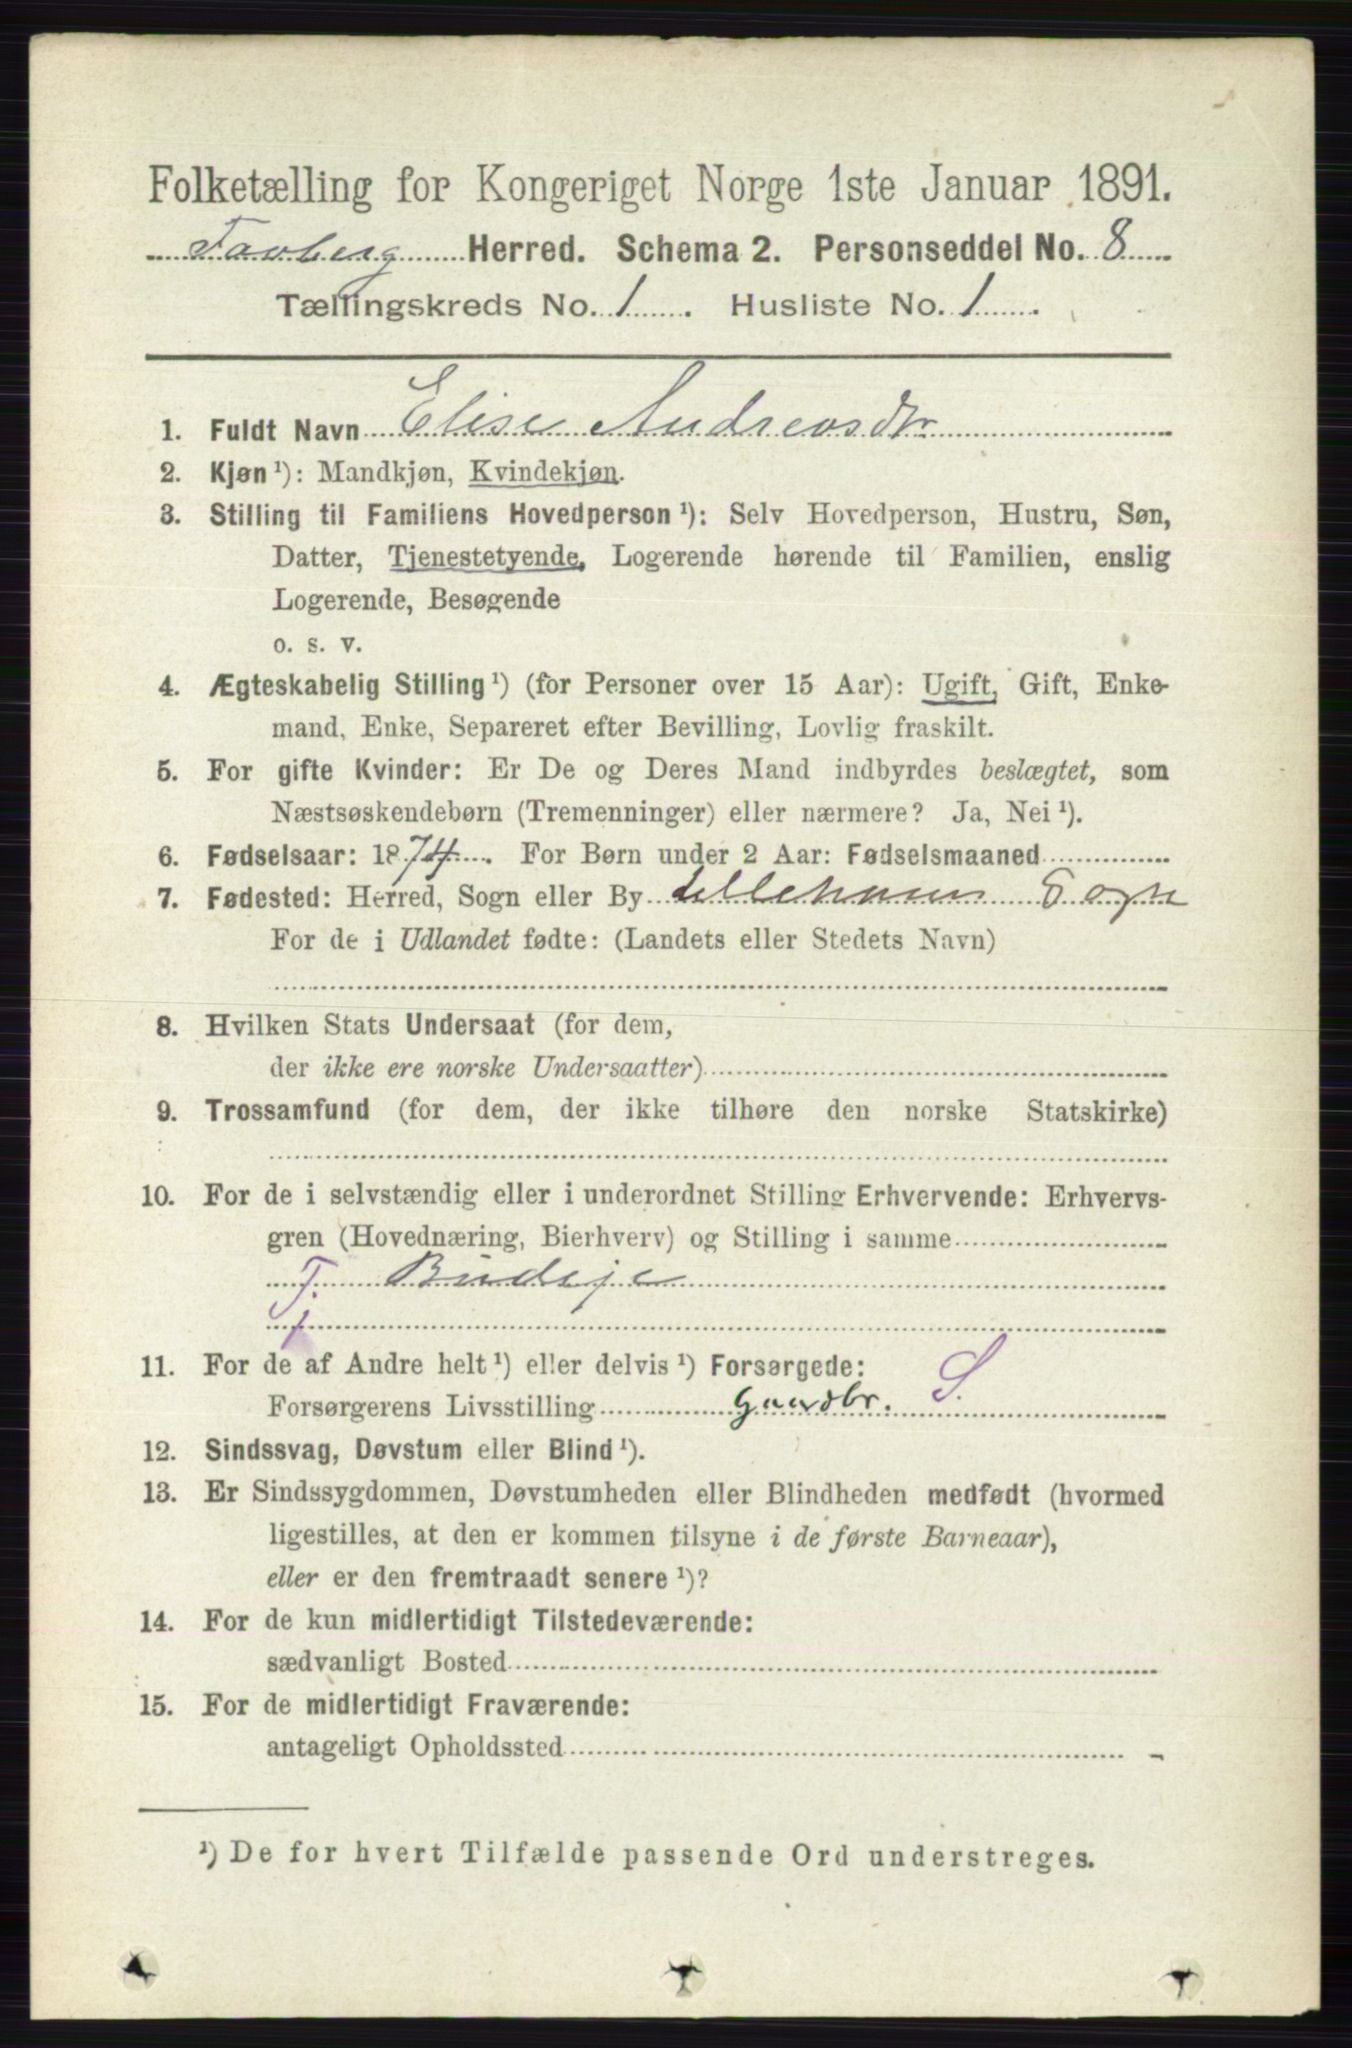 Folketælling for Kongeriget Norge 1ste Januar 1891.
Faaberg Herred. Schema 2. Personseddel No. 8
Tællingskreds No. 1. Husliste No. 1.
1. Fuldt Navn Elise Andreasdtr
2. Kjøn ¹): Mandkjøn, Kvindekjøn.
3. Stilling til Familiens Hovedperson ¹): Selv Hovedperson, Hustru, Søn,
Datter, Tjenestetyende, Logerende hørende til Familien, enslig
Logerende, Besøgende
o. s. v.
4. Ægteskabelig Stilling ¹) (for Personer over 15 Aar): Ugift, Gift, Enke-
mand, Enke, Separeret efter Bevilling, Lovlig fraskilt.
5. For gifte Kvinder: Er De og Deres Mand indbyrdes beslægtet, som
Næstsøskendebørn (Tremenninger) eller nærmere? Ja, Nei ¹).
6. Fødselsaar: 1874. For Børn under 2 Aar: Fødselsmaaned
7. Fødested: Herred, Sogn eller By Lillehamm Sogn
For de i Udlandet fødte: (Landets eller Stedets Navn)
8. Hvilken Stats Undersaat (for dem,
der ikke ere norske Undersaatter)
9. Trossamfund (for dem, der ikke tilhøre den norske Statskirke)
10. For de i selvstændig eller i underordnet Stilling Erhvervende: Erhvervs-
gren (Hovednæring, Bierhverv) og Stilling i samme
T. Budeje
11. For de af Andre helt ¹) eller delvis ¹) Forsørgede:
Forsørgerens Livsstilling Gaardbr. S.
12. Sindssvag, Døvstum eller Blind ¹).
13. Er Sindssygdommen, Døvstumheden eller Blindheden medfødt (hvormed
ligestilles, at den er kommen tilsyne i de første Barneaar),
eller er den fremtraadt senere ¹)?
14. For de kun midlertidigt Tilstedeværende:
sædvanligt Bosted
15. For de midlertidigt Fraværende:
antageligt Opholdssted
¹) De for hvert Tilfælde passende Ord understreges.